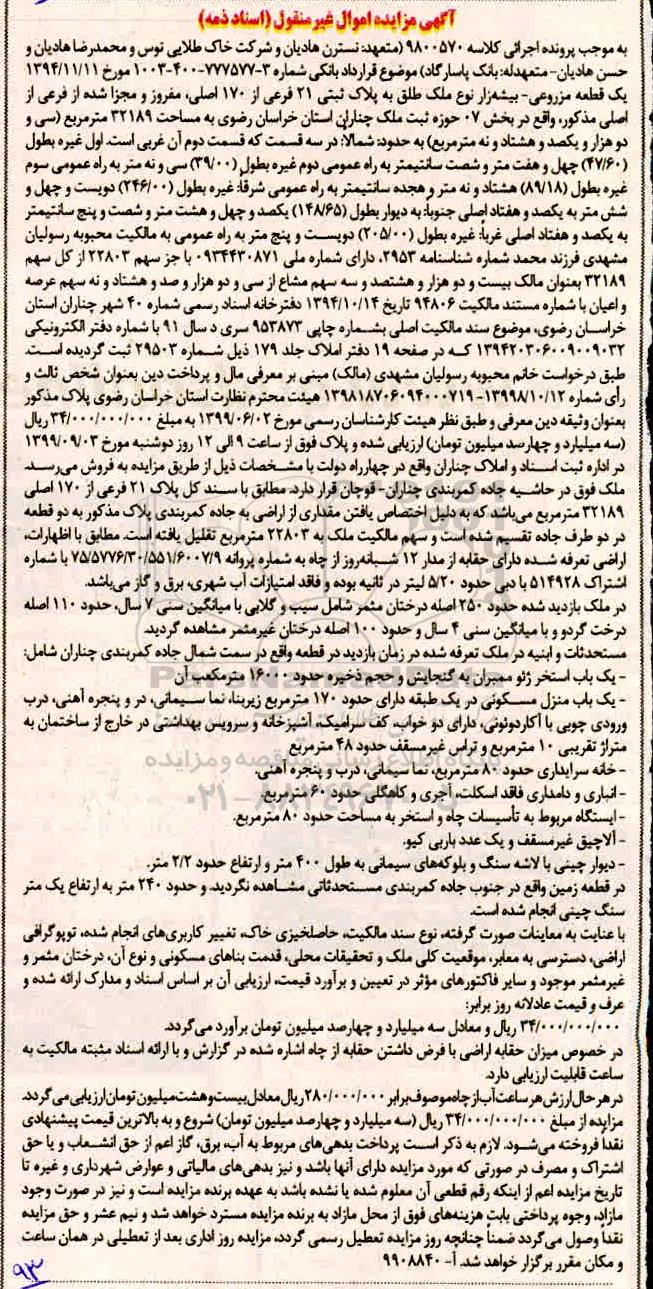 آگهی مزایده اموال غیرمنقول (اسناد ذمه)
به موجب پرونده اجرائی کلاسه ۹۸۰۰۵۷۰ (متعهد: نسترن هادیان و شرکت خاک طلایی توس و محمدرضا هادیان و
حسن هادیان- متعهدله: بانک پاسارگاد) موضوع قرارداد بانکی شماره ۳-۷۷۷۵۷۷-۴۰۰-۱۰۰۳ مورخ ۱۳۹۴/۱۱/۱۱
یک قطعه مزروعی- بیشه‌زار نوع ملک طلق به پلاک ثبتی ۲۱ فرعی از ۱۷۰ اصلی، مفروز و مجزا شده از فرعی از
اصلی مذکور، واقع در بخش ۰۷ حوزه ثبت ملک چناران استان خراسان رضوی به مساحت ۳۲۱۸۹ مترمربع (سی و
دو هزار و یکصد و هشتاد و نه مترمربع) به حدود: شمالاً: در سه قسمت که قسمت دوم آن غربی است. اول غیره بطول
(۴۷/۶۰) چهل و هفت متر و شصت سانتیمتر به راه عمومی دوم غیره بطول (۳۹/۰۰) سی و نه متر به راه عمومی سوم
غیره بطول (۸۹/۱۸) هشتاد و نه متر و هجده سانتیمتر به راه عمومی شرقاً: غیره بطول (۲۴۶/۰۰) دویست و چهل و
شش متر به یکصد و هفتاد اصلی جنوباً: به دیوار بطول (۱۴۸/۶۵) یکصد و چهل و هشت متر و شصت و پنج سانتیمتر
به یکصد و هفتاد اصلی غرباً: غیره بطول (۲۰۵/۰۰) دویست و پنج متر به راه عمومی به مالکیت محبوبه رسولیان
مشهدی فرزند محمد شماره شناسنامه ۲۹۵۳، دارای شماره ملی ۰۹۳۴۴۳۰۸۷۱ با جز سهم ۲۲۸۰۳ از کل سهم
۳۲۱۸۹ بعنوان مالک بیست و دو هزار و هشتصد و سه سهم مشاع از سی و دو هزار و صد و هشتاد و نه سهم عرصه
و اعیان با شماره مستند مالکیت ۹۴۸۰۶ تاریخ ۱۳۹۴/۱۰/۱۴ دفترخانه اسناد رسمی شماره ۴۰ شهر چناران استان
خراسان رضوی، موضوع سند مالکیت اصلی بشماره چاپی ۹۵۳۸۷۳ سری د سال ۹۱ با شماره دفتر الکترونیکی
۱۳۹۴۲۰۳۰۶۰۰۹۰۰۹۰۳۲ که در صفحه ۱۹ دفتر املاک جلد ۱۷۹ ذیل شماره ۲۹۵۰۳ ثبت گردیده است.
طبق درخواست خانم محبوبه رسولیان مشهدی (مالک) مبنی بر معرفی مال و پرداخت دین بعنوان شخص ثالث و
رأی شماره ۱۳۹۸۱۸۷۰۶۰۹۴۰۰۰۷۱۹-۱۳۹۹۸/۱۰/۱۲ هیئت محترم نظارت استان خراسان رضوی پلاک مذکور
بعنوان وثیقه دین معرفی و طبق نظر هیئت کارشناسان رسمی مورخ ۱۳۹۹/۰۶/۰۲ به مبلغ ۳۴/۰۰۰/۰۰۰/۰۰۰ ریال
(سه میلیارد و چهارصد میلیون تومان) ارزیابی شده و پلاک فوق از ساعت ۹ الی ۱۲ روز دوشنبه مورخ ۱۳۹۹/۰۹/۰۳
در اداره ثبت اسناد و املاک چناران واقع در چهارراه دولت با مشخصات ذیل از طریق مزایده به فروش می‌رسد.
ملک فوق در حاشیه جاده کمربندی چناران- قوچان قرار دارد. مطابق با سند کل پلاک ۲۱ فرعی از ۱۷۰ اصلی
۳۲۱۸۹ مترمربع می‌باشد که به دلیل اختصاص یافتن مقداری از اراضی به جاده کمربندی پلاک مذکور به دو قطعه
در دو طرف جاده تقسیم شده است و سهم مالکیت ملک به ۲۲۸۰۳ مترمربع تقلیل یافته است. مطابق با اظهارات،
اراضی تعرفه شده دارای حقابه از مدار ۱۲ شبانه‌روز از چاه به شماره پروانه ۷۵/۵۷۷۶/۳۰/۵۵۱/۶۰۰۷/۹ با شماره
اشتراک ۵۱۴۹۲۸ با دبی حدود ۵/۲۰ لیتر در ثانیه بوده و فاقد امتیازات آب شهری، برق و گاز می‌باشد.
در ملک بازدید شده حدود ۲۵۰ اصله درختان مثمر شامل سیب و گلابی با میانگین سنی ۷ سال، حدود ۱۱۰ اصله
درخت گردو و با میانگین سنی ۴ سال و حدود ۱۰۰ اصله درختان غیرمثمر مشاهده گردید.
مستحدثات و ابنیه در ملک تعرفه شده در زمان بازدید در قطعه واقع در سمت شمال جاده کمربندی چناران شامل:
- یک باب استخر ژئو ممبران به گنجایش و حجم ذخیره حدود ۱۶۰۰۰ مترمکعب آن
- یک باب منزل مسکونی در یک طبقه دارای حدود ۱۷۰ مترمربع زیربنا، نما سیمانی، در و پنجره آهنی، درب
ورودی چوبی با آکاردوئونی، دارای دو خواب، کف سرامیک، آشپزخانه و سرویس بهداشتی در خارج از ساختمان به
متراژ تقریبی ۱۰ مترمربع و تراس غیرمسقف حدود ۴۸ مترمربع
- خانه سرایداری حدود ۸۰ مترمربع، نما سیمانی، درب و پنجره آهنی.
- انباری و دامداری فاقد اسکلت، آجری و کاهگلی حدود ۶۰ مترمربع.
- ایستگاه مربوط به تأسیسات چاه و استخر به مساحت حدود ۸۰ مترمربع.
- آلاچیق غیرمسقف و یک عدد باربی کیو.
- دیوار چینی با لاشه سنگ و بلوکه‌های سیمانی به طول ۴۰۰ متر و ارتفاع حدود ۲/۲ متر.
در قطعه زمین واقع در جنوب جاده کمربندی مستحدثاتی مشاهده نگردید. و حدود ۲۴۰ متر به ارتفاع یک متر
سنگ چینی انجام شده است.
با عنایت به معاینات صورت گرفته، نوع سند مالکیت، حاصلخیزی خاک، تغییر کاربری‌های انجام شده، توپوگرافی
اراضی، دسترسی به معابر، موقعیت کلی ملک و تحقیقات محلی، قدمت بناهای مسکونی و نوع آن، درختان مثمر و
غیرمثمر موجود و سایر فاکتورهای مؤثر در تعیین و برآورد قیمت، ارزیابی آن بر اساس اسناد و مدارک ارائه شده و
عرف و قیمت عادلانه روز برابر:
۳۴/۰۰۰/۰۰۰/۰۰۰ ریال و معادل سه میلیارد و چهارصد میلیون تومان برآورد می‌گردد.
در خصوص میزان حقابه اراضی با فرض داشتن حقابه از چاه اشاره شده در گزارش و با ارائه اسناد مثبته مالکیت به
ساعت قابلیت ارزیابی دارد.
در هر حال ارزش هر ساعت آب از چاه موصوف برابر ۲۸۰/۰۰۰/۰۰۰ ریال معادل بیست و هشت میلیون تومان ارزیابی می گردد.
مزایده از مبلغ ۳۴/۰۰۰/۰۰۰/۰۰۰ ریال (سه میلیارد و چهارصد میلیون تومان) شروع و به بالاترین قیمت پیشنهادی
نقداً فروخته می‌شود. لازم به ذکر است پرداخت بدهی‌های مربوط به آب، برق، گاز اعم از حق انشعاب و یا حق
اشتراک و مصرف در صورتی که مورد مزایده دارای آنها باشد و نیز بدهی‌های مالیاتی و عوارض شهرداری و غیره تا
تاریخ مزایده اعم از اینکه رقم قطعی آن معلوم شده یا نشده باشد به عهده برنده مزایده است و نیز در صورت وجود
مازاد، وجوه پرداختی بابت هزینه‌های فوق از محل مازاد به برنده مزایده مسترد خواهد شد و نیم عشر و حق مزایده
نقداً وصول می‌گردد ضمناً چنانچه روز مزایده تعطیل رسمی گردد، مزایده روز اداری بعد از تعطیلی در همان ساعت
و مکان مقرر برگزار خواهد شد. آ- ۹۹۰۸۸۴۰
۹۳